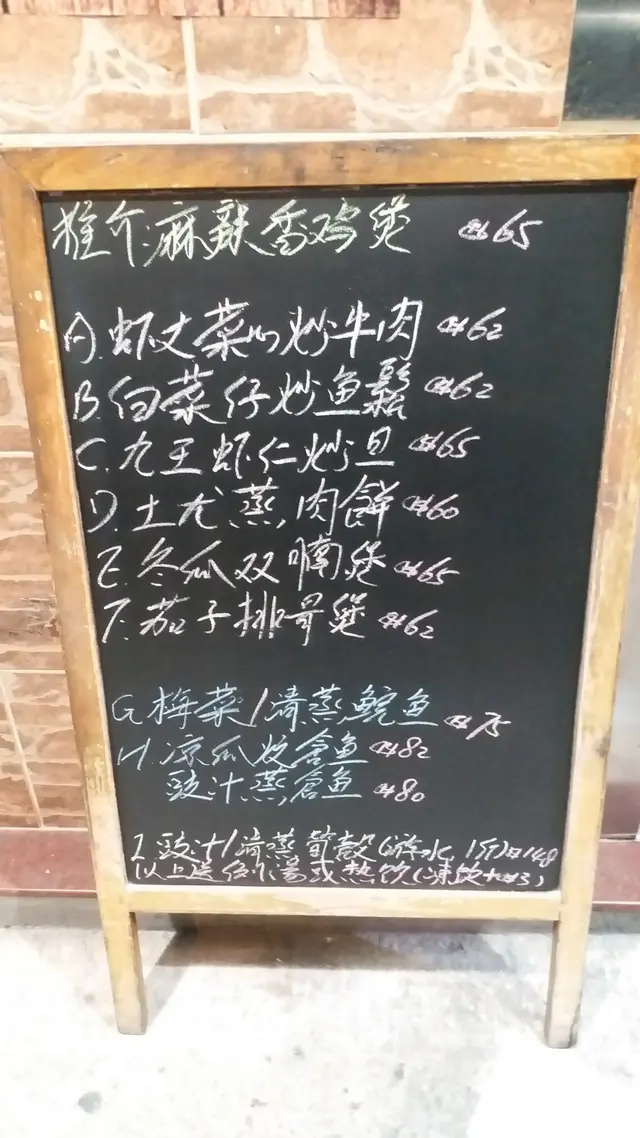 推介:麻辣香鸡煲 $65
A. 虾丈菜心炒牛肉 $62
B. 白菜仔炒鱼鬆 $62
C. 九王虾仁炒旦 $65
D. 土尤蒸肉餅 $60
E. 冬瓜双腩煲 $65
F. 茄子排骨煲 $62
G. 梅菜/清蒸鲩鱼 $75
H. 凉瓜炆鱼 $82
豉汁蒸鱼 $80
I. 豉汁/清蒸筍殼(游水,1份)$148
以上送例湯或热饮(凍饮+$3)